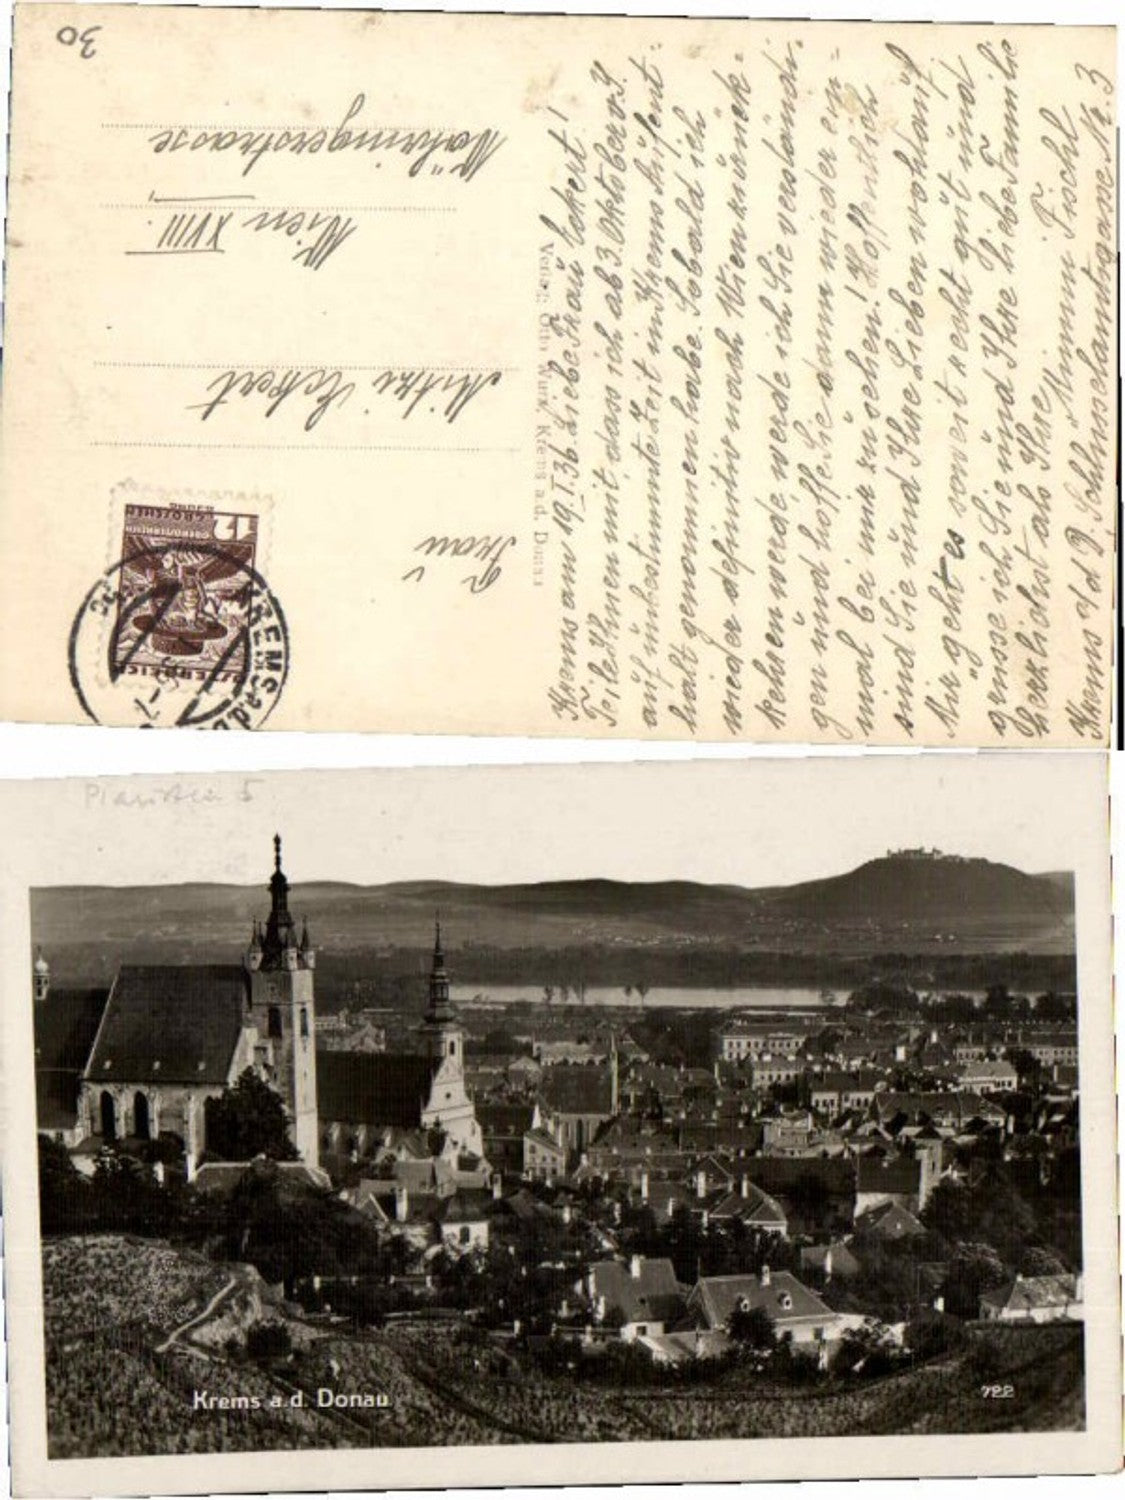 30
Krems am 19.I.36. Liebe Frau Eckert!
Teile Ihnen mit dass ich ab 3. Oktober v. J.
auf unbestimmte Zeit in Krems Aufent-
halt genommen habe. Sobald ich
wieder definitiv nach Wien zurück-
kehren werde, werde ich Sie verständi-
gen und hoffe Sie dann wieder ein-
mal bei mir zu sehen! Hoffentlich
sind Sie und Ihre Lieben wohlauf.
Mir geht es soweit recht gut und
grüsse ich Sie und Ihre liebe Familie
herzlichst als Ihre
Minna Fischl
Krems a/d D., Schlüsselamtsgasse Nr. 3
Verlag: Otto Wurk, Krems a. d. Donau
Frau
Mitzi Eckert
Wien XVIII.
Währingerstrasse
12
GROSCHEN
ÖSTERREICH
KREMS a.d.D
Piaristen 5
Krems a.d. Donau
722